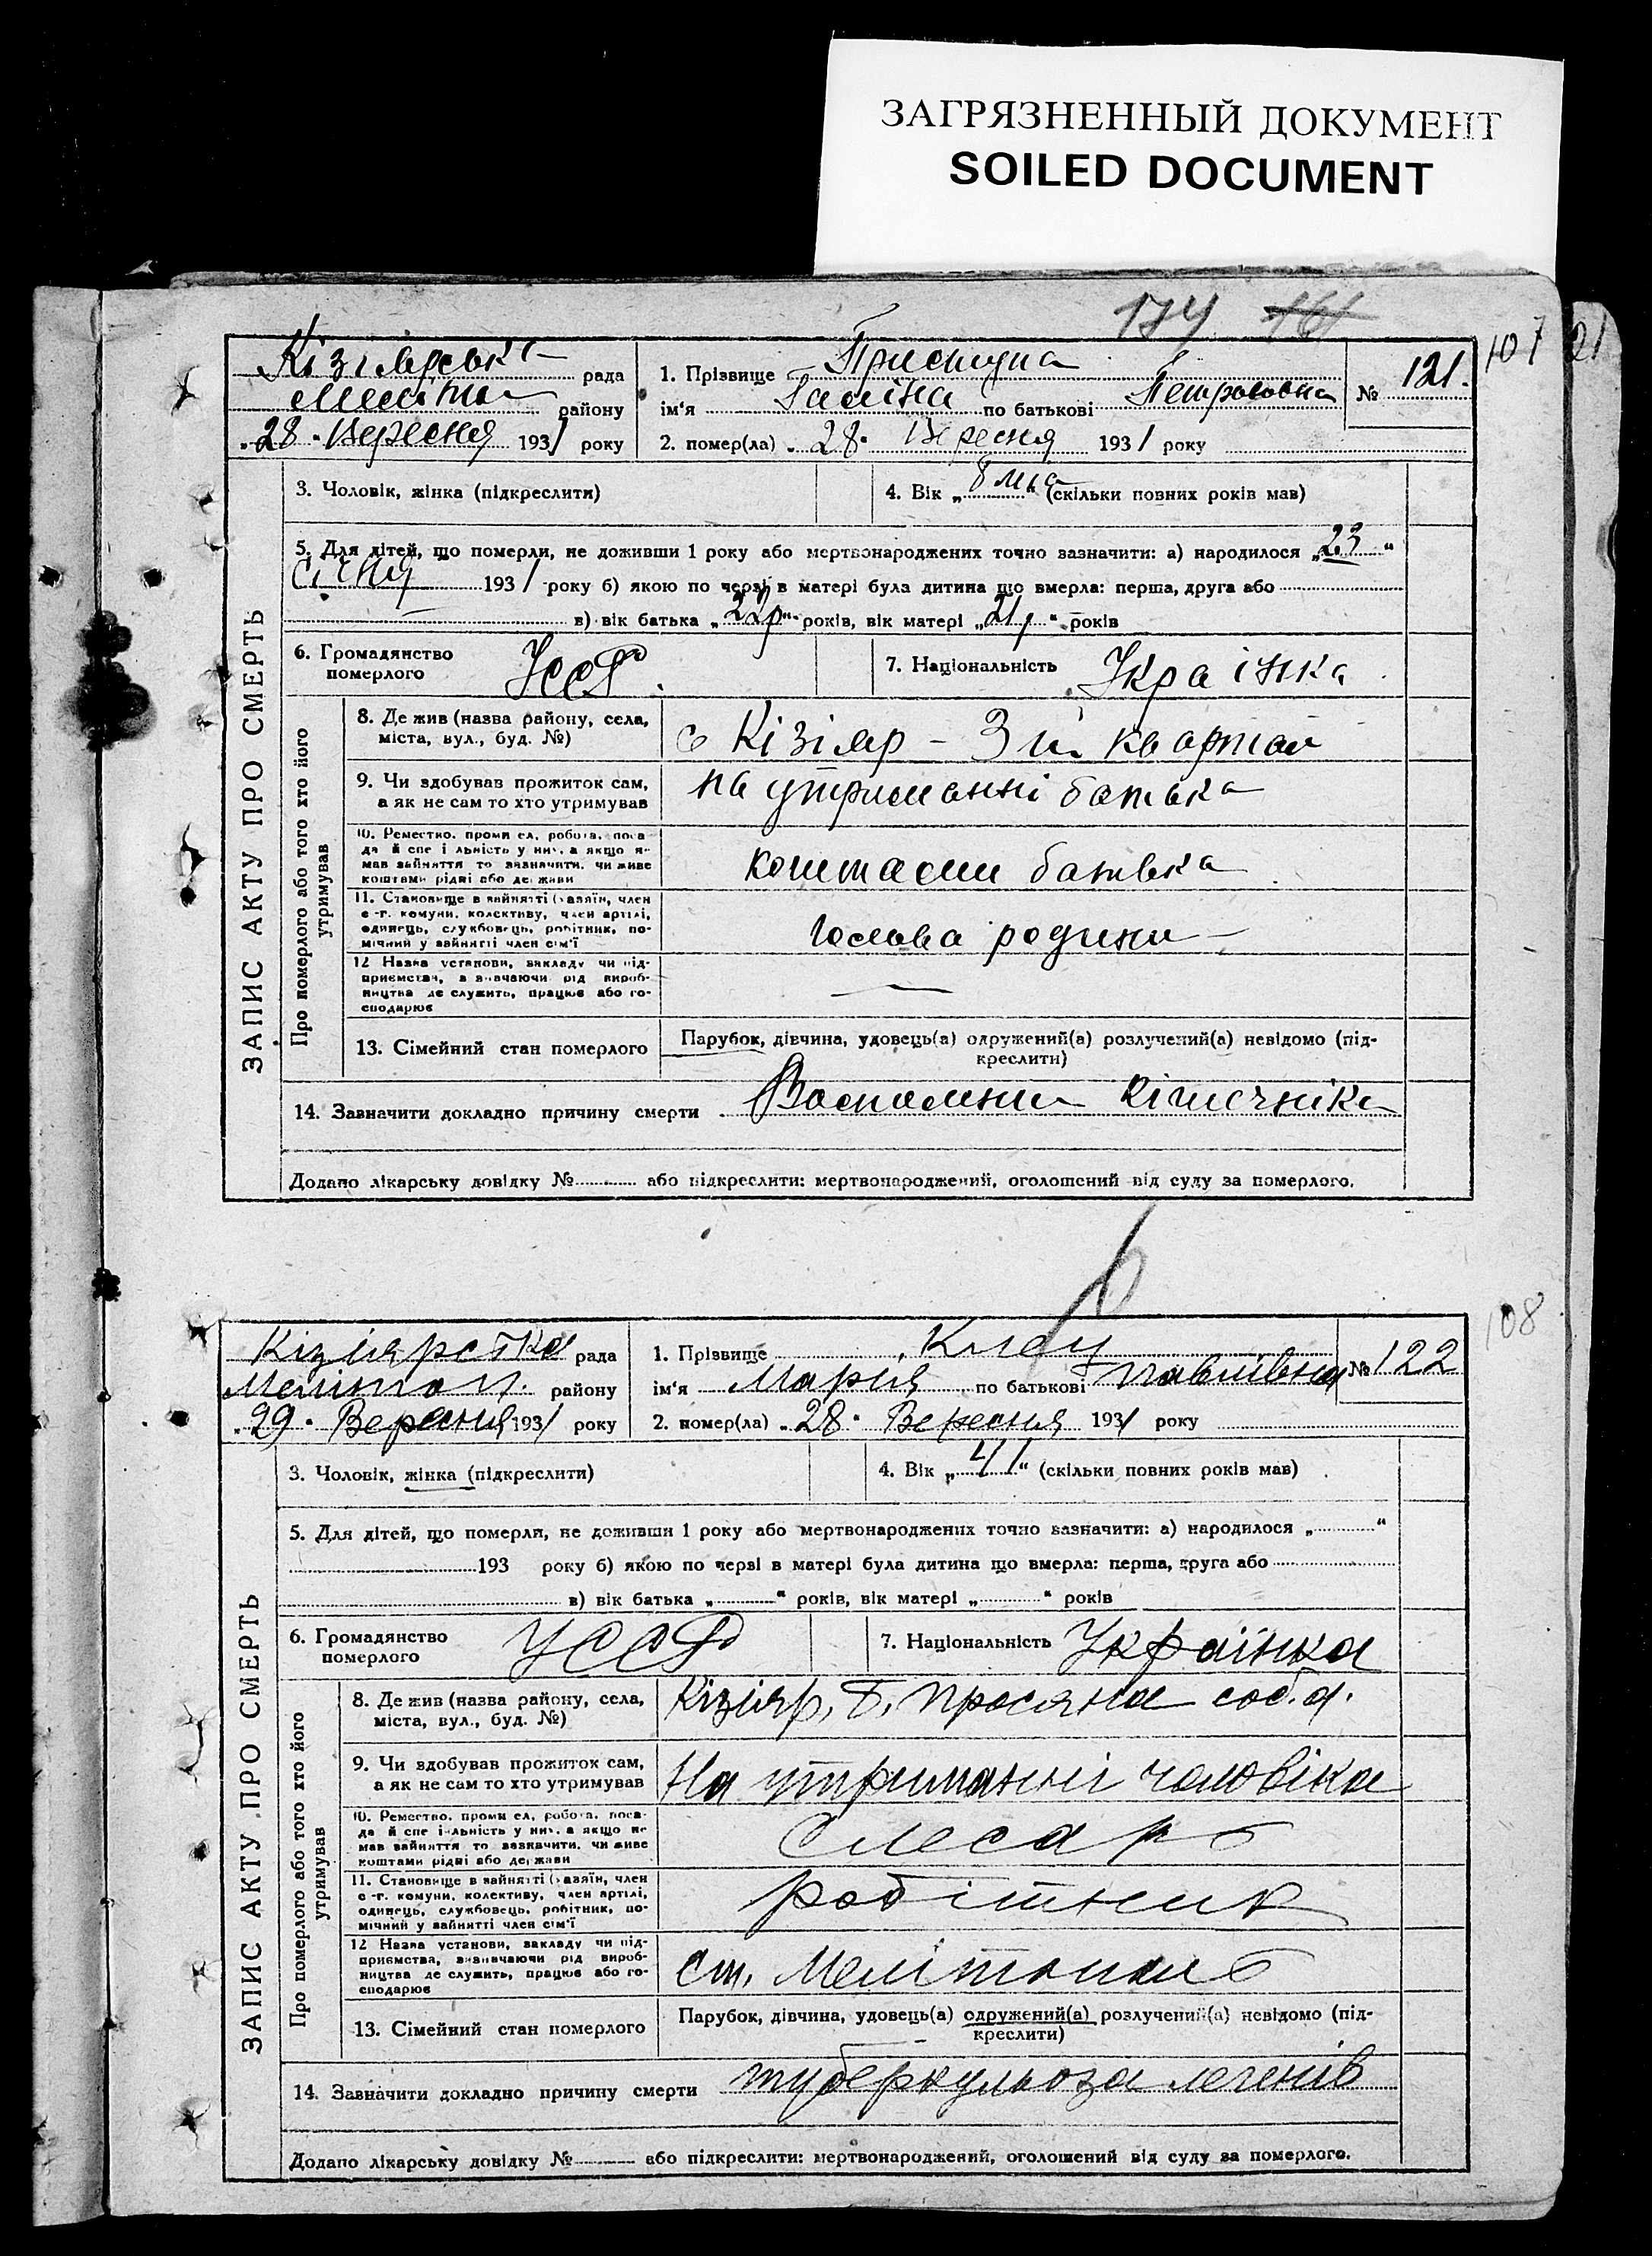 ЗАГРЯЗНЕННЫЙ ДОКУМЕНТ
SOILED DOCUMENT
174 161
107 21
Кізіярська рада
Меліто району
„28" Вересня 1931 року
1. Прізвище Приступа
ім'я Галіна по батькові Петрововна
№ 121.
2. помер(ла) „28" Вересня 1931 року
ЗАПИС АКТУ ПРО СМЕРТЬ
3. Чоловік, жінка (підкреслити)
4. Вік „8 м-ца" (скільки повних років мав)
5. Для дітей, що померли, не доживши 1 року або мертвонароджених точно зазначити: а) народилося „23"
Січня 1931 року б) якою по черзі в матері була дитина що вмерла: перша, друга або
в) вік батька „22р" років, вік матері „21р" років
6. Громадянство померлого УССР.
7. Національність Українка
Про померлого або того хто його утримував
8. Де жив (назва району, села,
міста, вул., буд. №)
с Кізіяр - 3 й квартал
9. Чи здобував прожиток сам,
а як не сам то хто утримував
на утриманні батька
10. Ремество, промисел, робота, поса
да й спеціальність у них, а якщо не
мав зайняття то зазначити, чи живе
коштами рідні або держави
коштами батька
11. Становище в зайнятті (хазяїн, член
с-г. комуни, колективу, член артілі,
одинець, службовець, робітник, по-
мічний у зайнятті член сім'ї
Голова родини
12 Назва установи, закладу чи під-
приємства, зазначаючи рід вироб-
ництва де служить, працює або го-
сподарює
—
13. Сімейний стан померлого
Парубок, дівчина, удовець(а) одружений(а) розлучений(а) невідомо (під-
креслити)
14. Зазначити докладно причину смерти Воспаления кішечніка
Додано лікарську довідку № або підкреслити: мертвонароджений, оголошений від суду за померлого.
108
Кізіярська рада
Мелітоп. району
„29" Вересня 1931 року
1. Прізвище
ім'я Марія по батькові Павлівна
№ 122
2. помер(ла) „28" Вересня 1931 року
ЗАПИС АКТУ ПРО СМЕРТЬ
3. Чоловік, жінка (підкреслити)
4. Вік „41" (скільки повних років мав)
5. Для дітей, що померли, не доживши 1 року або мертвонароджених точно зазначити: а) народилося „ "
193 року б) якою по черзі в матері була дитина що вмерла: перша, друга або
в) вік батька „ " років, вік матері „ " років
6. Громадянство померлого УССР
7. Національність Українка
Про померлого або того хто його утримував
8. Де жив (назва району, села,
міста, вул., буд. №)
Кізіяр, Б. Просяна соб. д.
9. Чи здобував прожиток сам,
а як не сам то хто утримував
На утриманні чоловіка
10. Ремество, промисел, робота, поса-
да й спеціальність у них, а якщо не
мав зайняття то зазначити, чи живе
коштами рідні або держави
Слесарь
11. Становище в зайнятті (хазяїн, член
с-г. комуни, колективу, член артілі,
одинець, службовець, робітник, по-
мічний у зайнятті член сім'ї
робітник
12 Назва установи, закладу чи під-
приємства, зазначаючи рід вироб-
ництва де служить, працює або го-
сподарює
ст. Мелітополь
13. Сімейний стан померлого
Парубок, дівчина, удовець(а) одружений(а) розлучений(а) невідомо (під-
креслити)
14. Зазначити докладно причину смерти туберкульоза легенів
Додано лікарську довідку № або підкреслити: мертвонароджений, оголошений від суду за померлого.